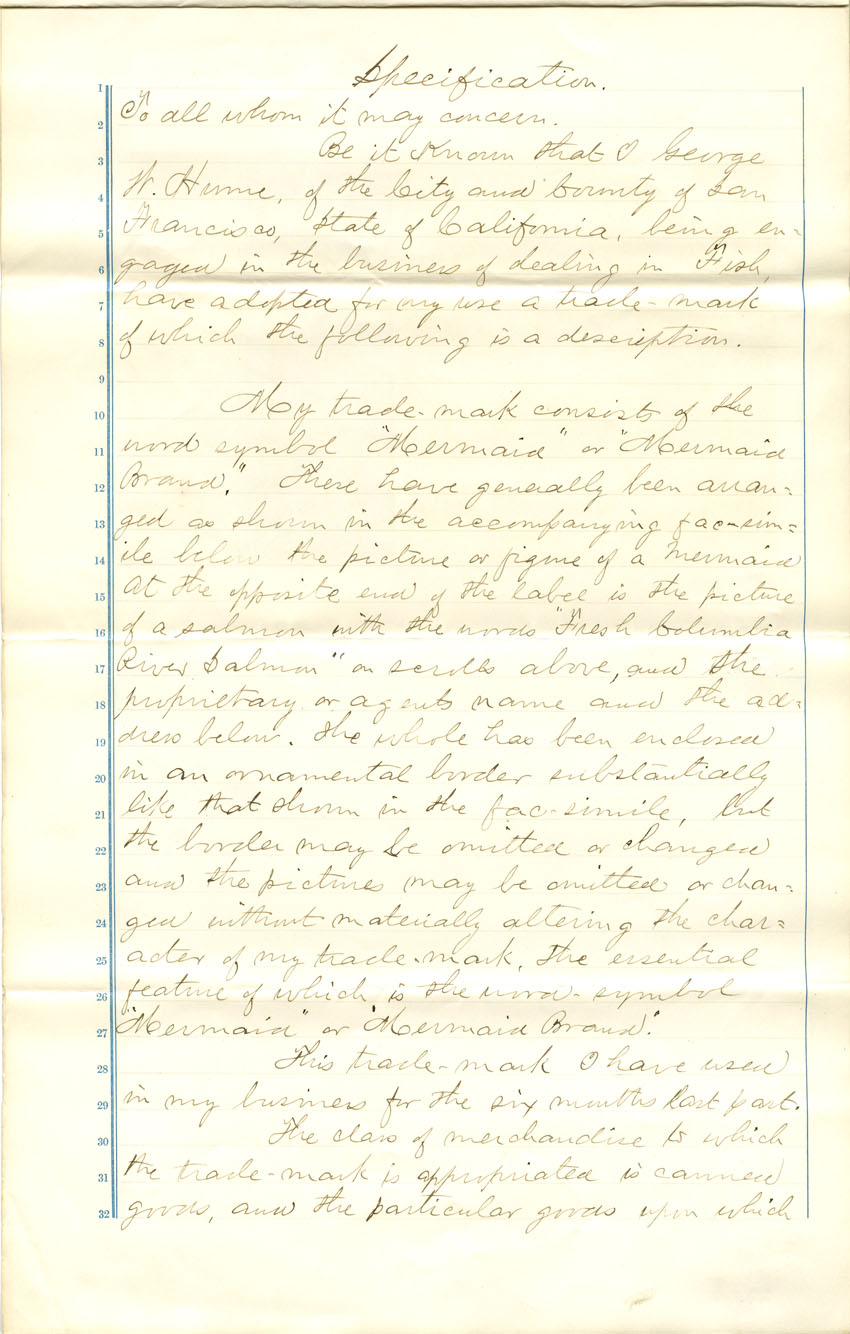 Specification.
1
To all whom it may concern.
2
Be it Known that I George
3
W. Hume, of the City and County of San
4
Francisco, State of California, being en=
5
gaged in the business of dealing in Fish,
6
have adopted for my use a trade-mark
7
of which the following is a description.
8
9
My trade-mark consists of the
10
word symbol "Mermaid" or "Mermaid
11
Brand." These have generally been arran=
12
ged as shown in the accompanying fac-sim=
13
ile below the picture or figure of a Mermaid
14
At the opposite end of the label is the picture
15
of a salmon with the words "Fresh Columbia
16
River Salmon" on scrolls above, and the
17
proprietary or agents name and the ad=
18
dress below. The whole has been enclosed
19
in an ornamental border substantially
20
like that shown in the fac-simile, but
21
the border may be omitted or changed
22
and the pictures may be omitted or chan=
23
ged without materially altering the char=
24
acter of my trade-mark, the essential
25
feature of which is the word-symbol
26
"Mermaid" or "Mermaid Brand".
27
This trade-mark I have used
28
in my business for the six months last past.
29
The class of merchandise to which
30
the trade-mark is appropriated is canned
31
goods, and the particular goods upon which
32